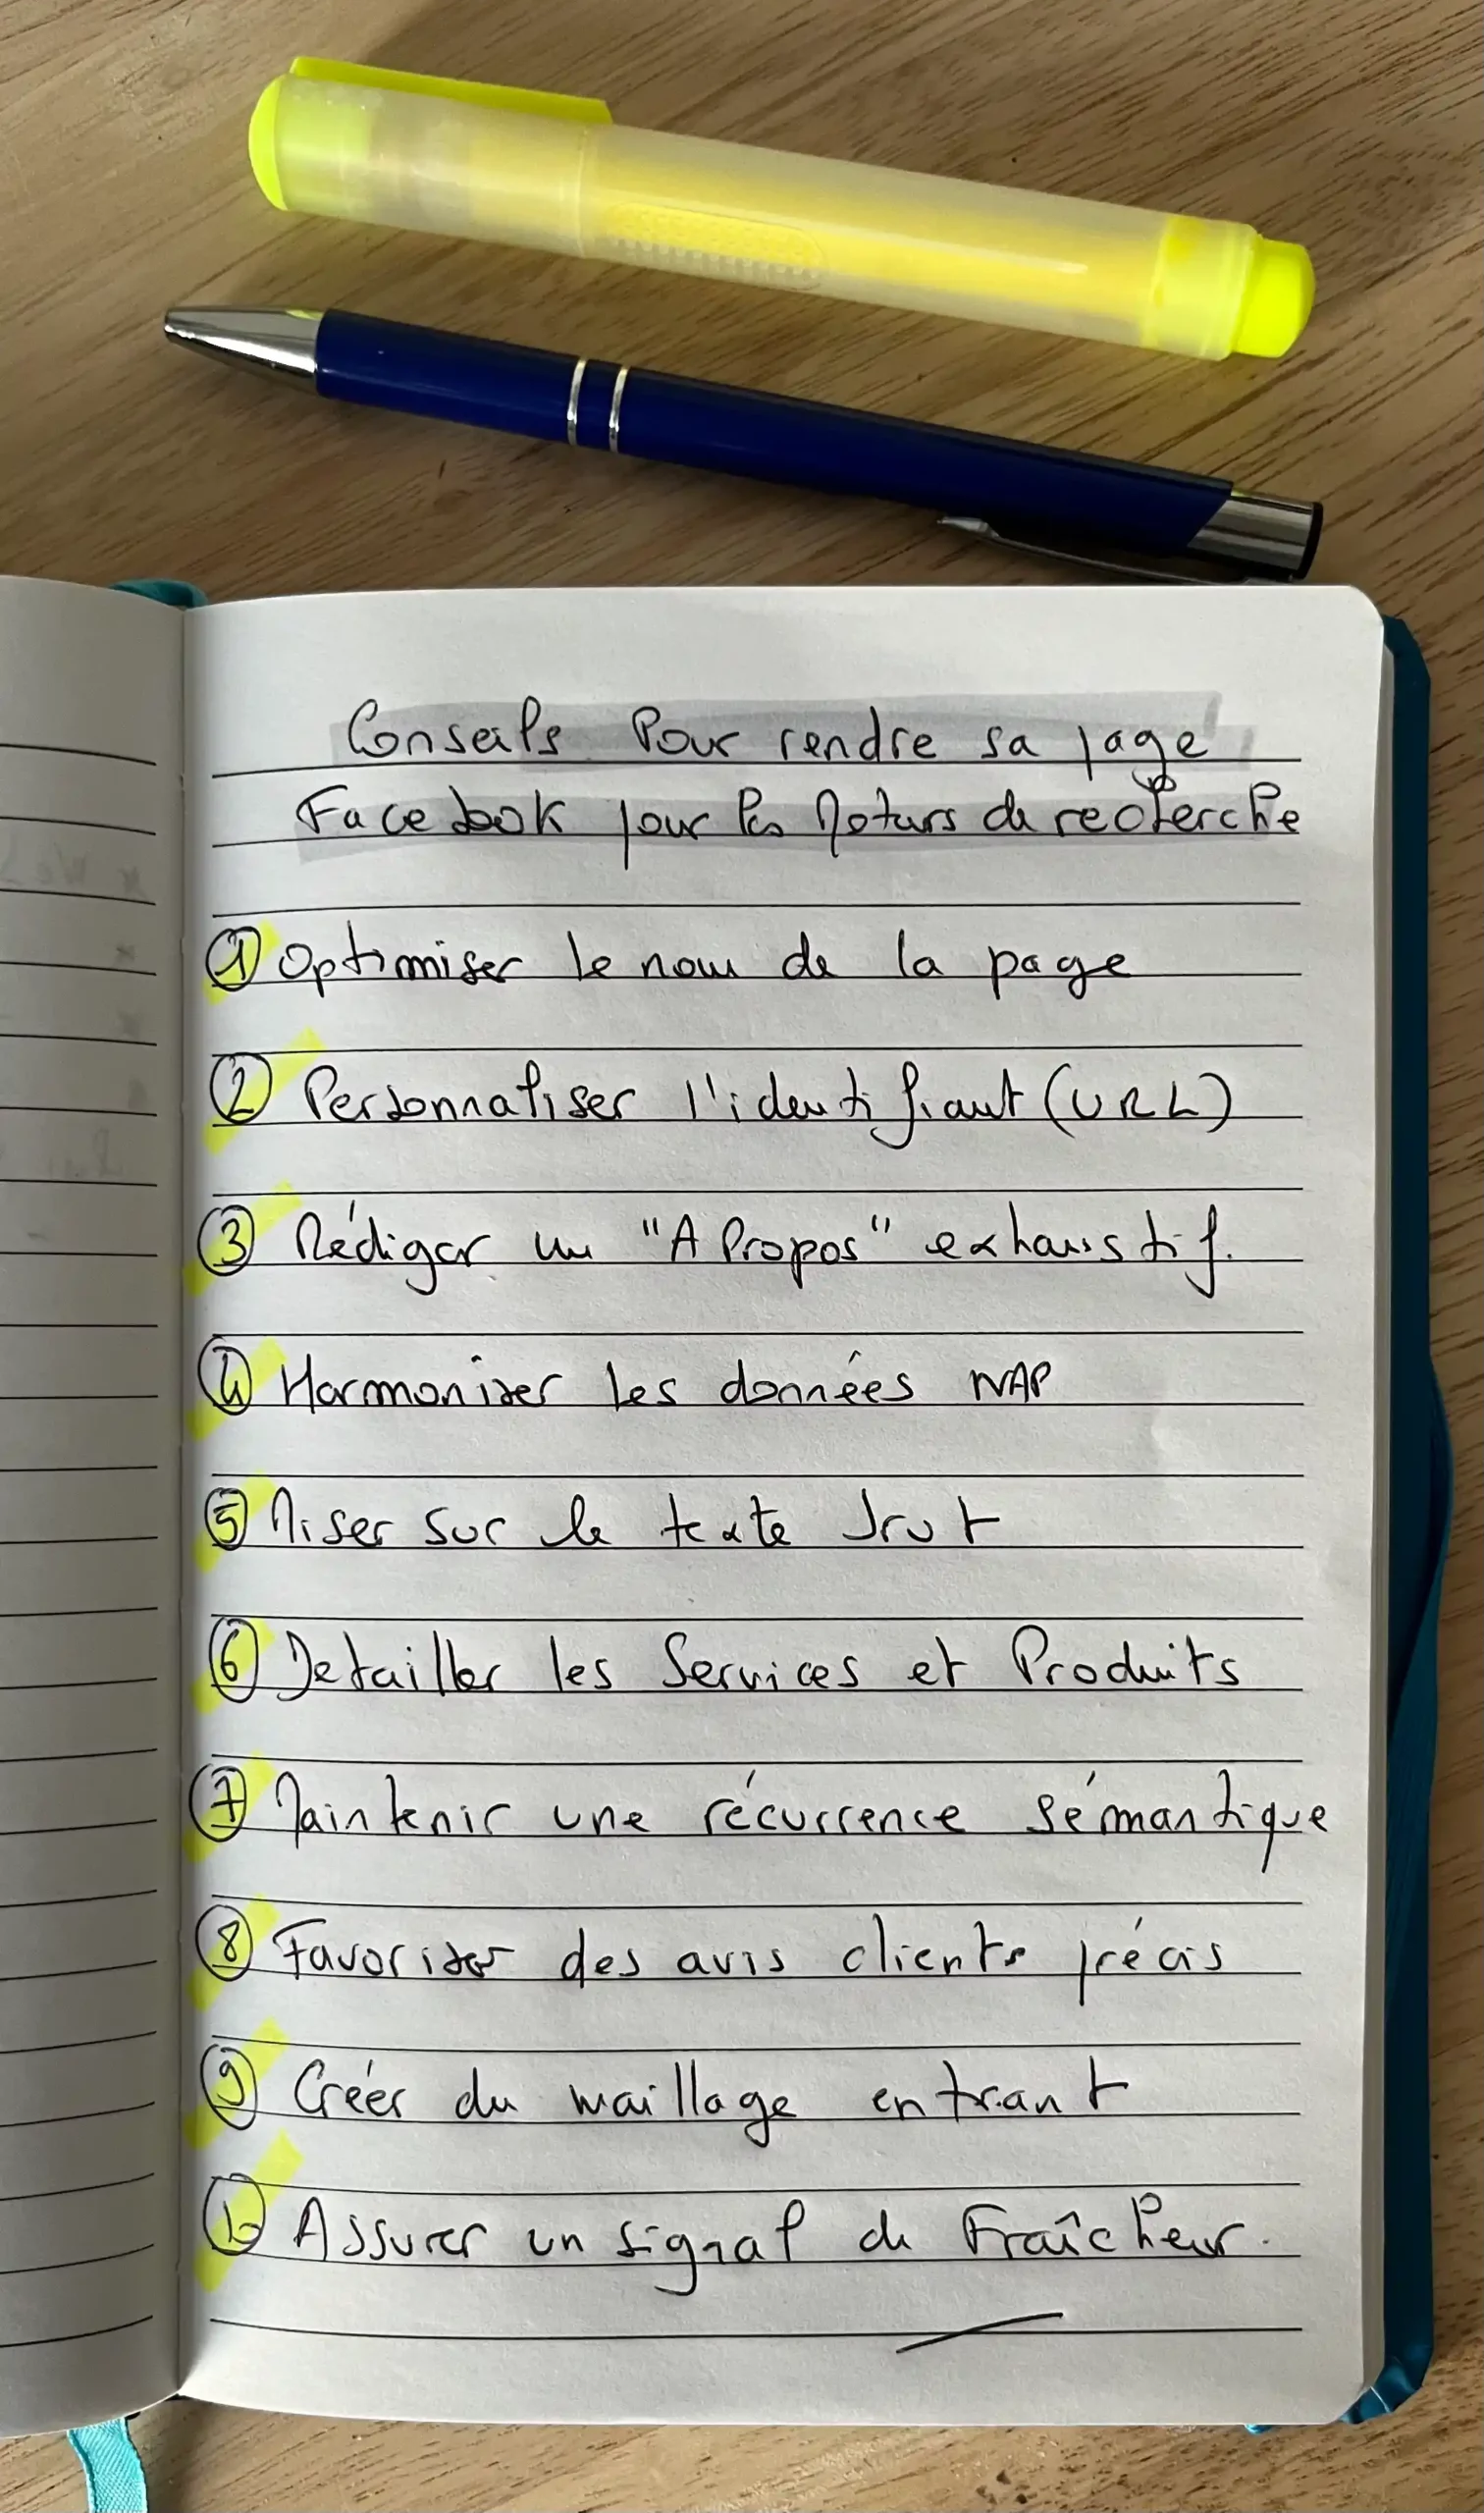 Conseils Pour rendre sa page
Facebook pour les Moteurs de recherche
① Optimiser le nom de la page
② Personnaliser l'identifiant (URL)
③ Rédiger un "A Propos" exhaustif.
④ Harmoniser les données NAP
⑤ Miser sur le texte brut
⑥ Detailler les Services et Produits
⑦ Maintenir une récurrence sémantique
⑧ Favoriser des avis clients précis
⑨ Créer du maillage entrant
⑩ Assurer un signal de Fraîcheur.